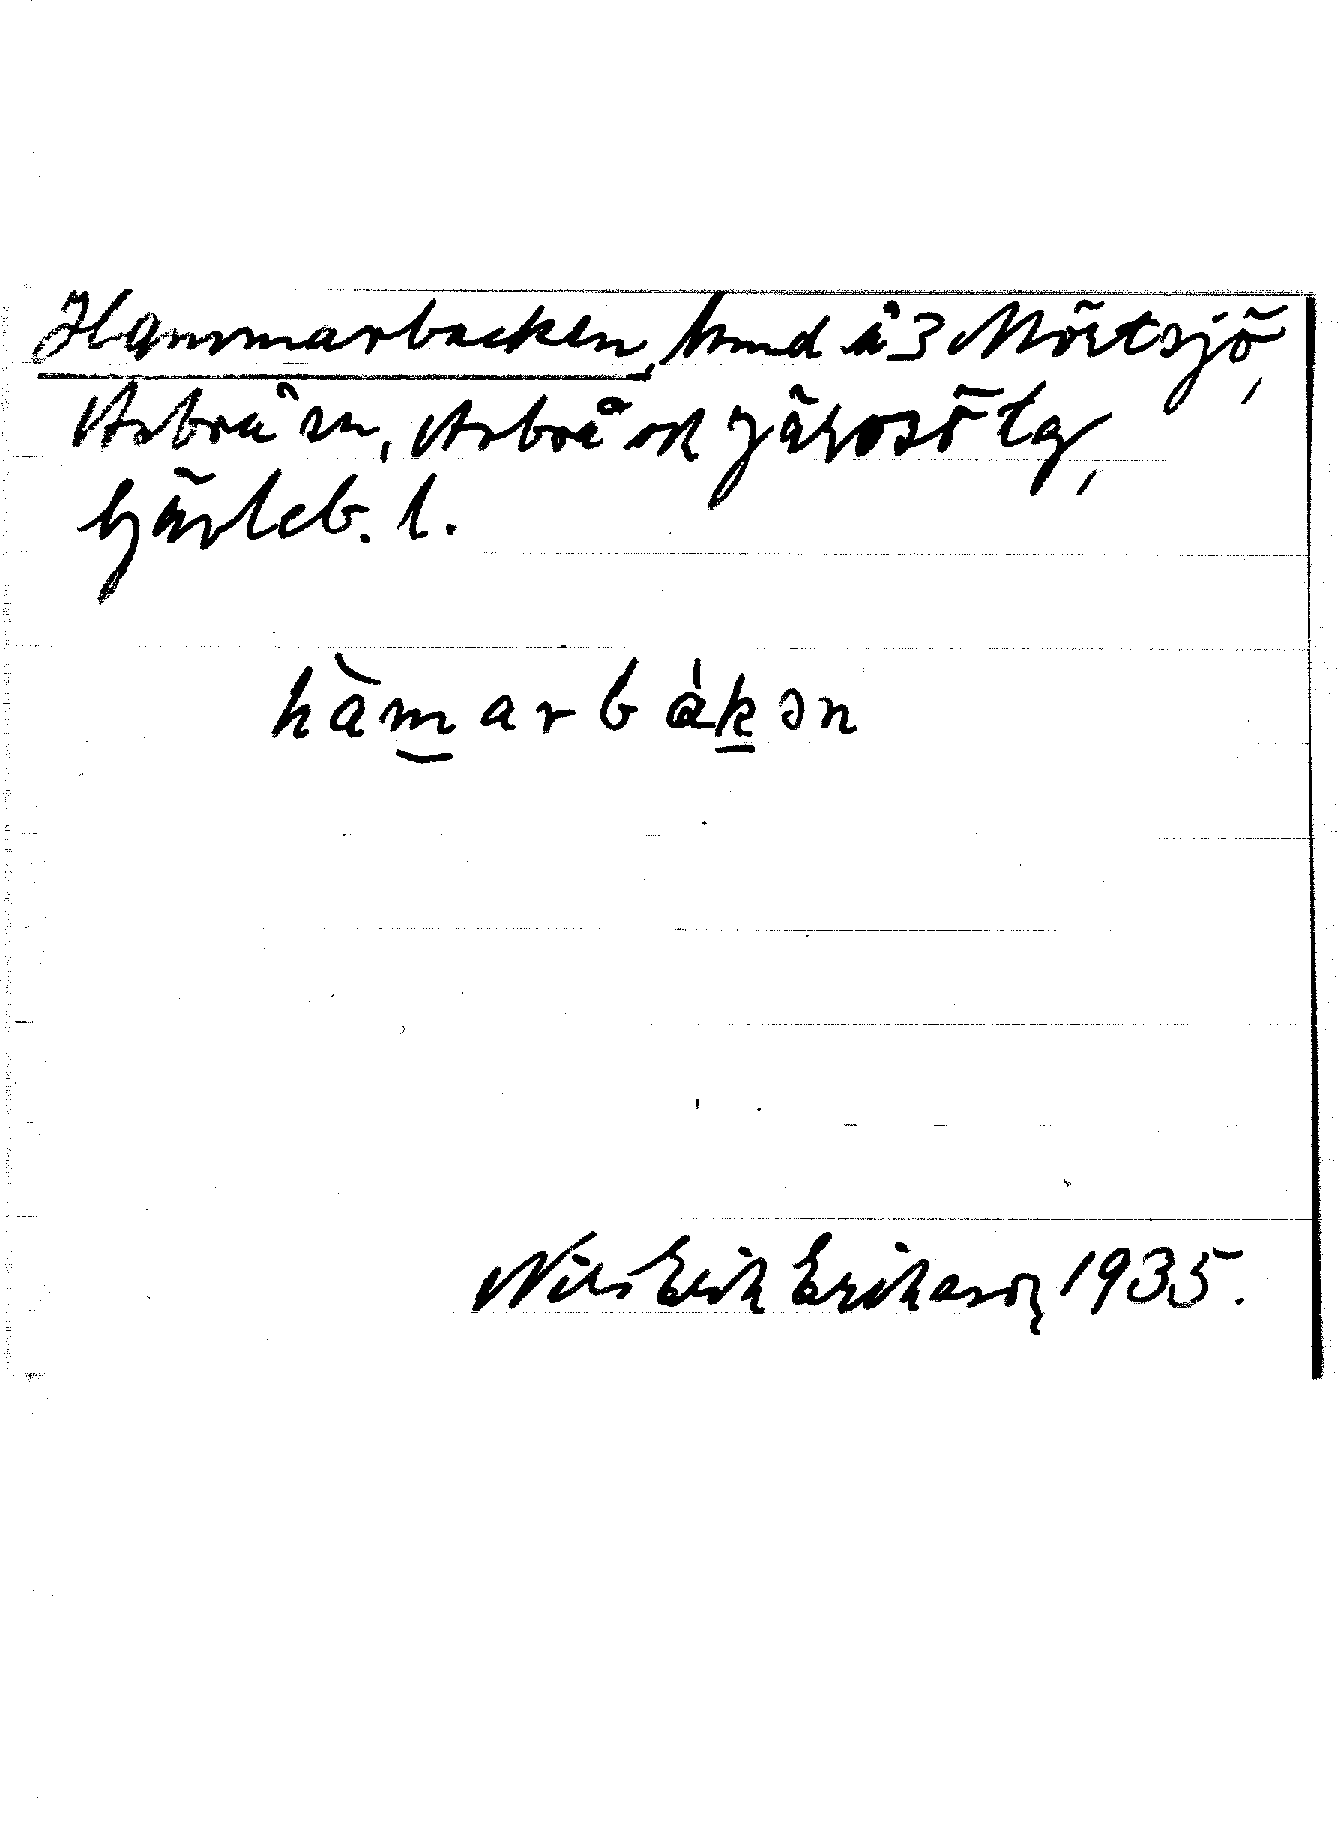 Hammarbacken, hmd å 3 Mörtsjö,
Arbrå sn, Arbrå och Järvsö tg,
Gävleb. l.
hàmarbák̲ən
Nils Erik Erikson 1935.